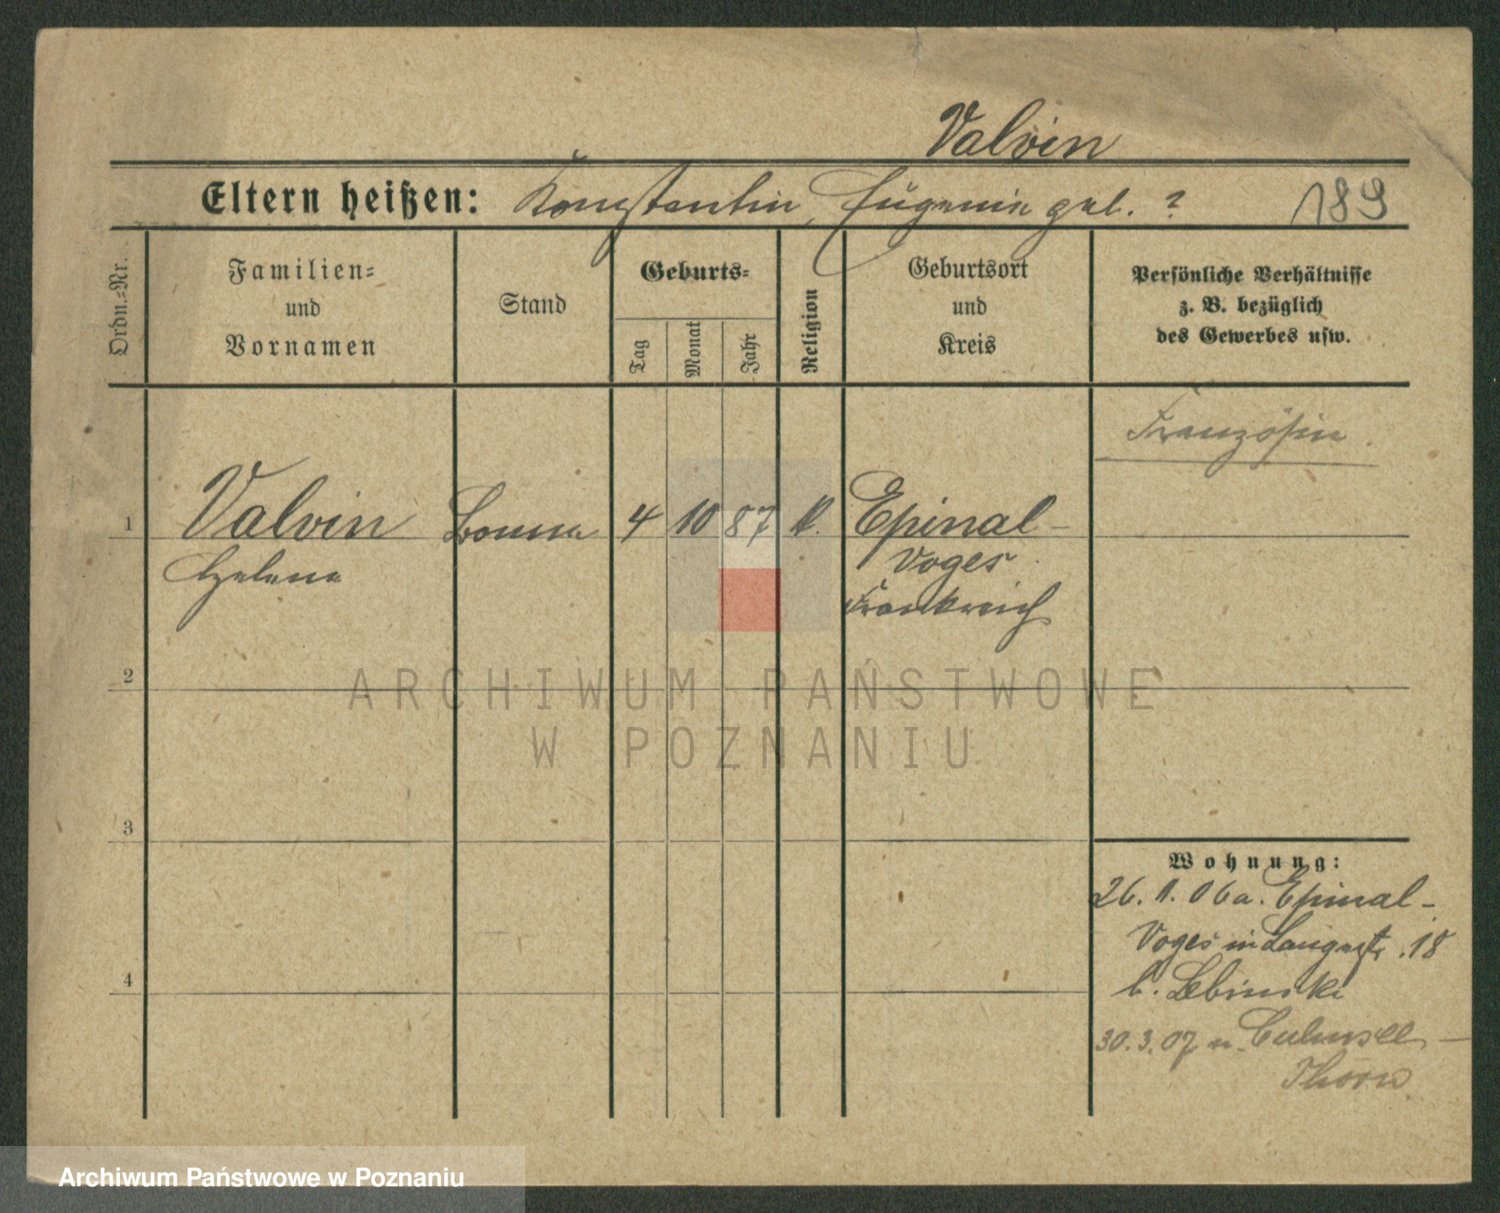 Valvin
Eltern heißen: Konstantin, Eugenie geb. ?
189
Ordn.-Nr.
Familien-
und
Vornamen
Stand
Geburts-
Tag
Monat
Jahr
Religion
Geburtsort
und
Kreis
Persönliche Verhältnisse
z. B. bezüglich
des Gewerbes usw.
Französin.
1 Valvin Bonne 4 10 87 k. Epinal-
Helene Voges
Frankreich
2
ARCHIWUM PAŃSTWOWE
W POZNANIU
3
4
Wohnung:
26. 11. 06 a. Epinal-
Voges in Langestr. 18
b. Lebinski
30. 3. 07 n. Culmsee-
Thorn
Archiwum Państwowe w Poznaniu